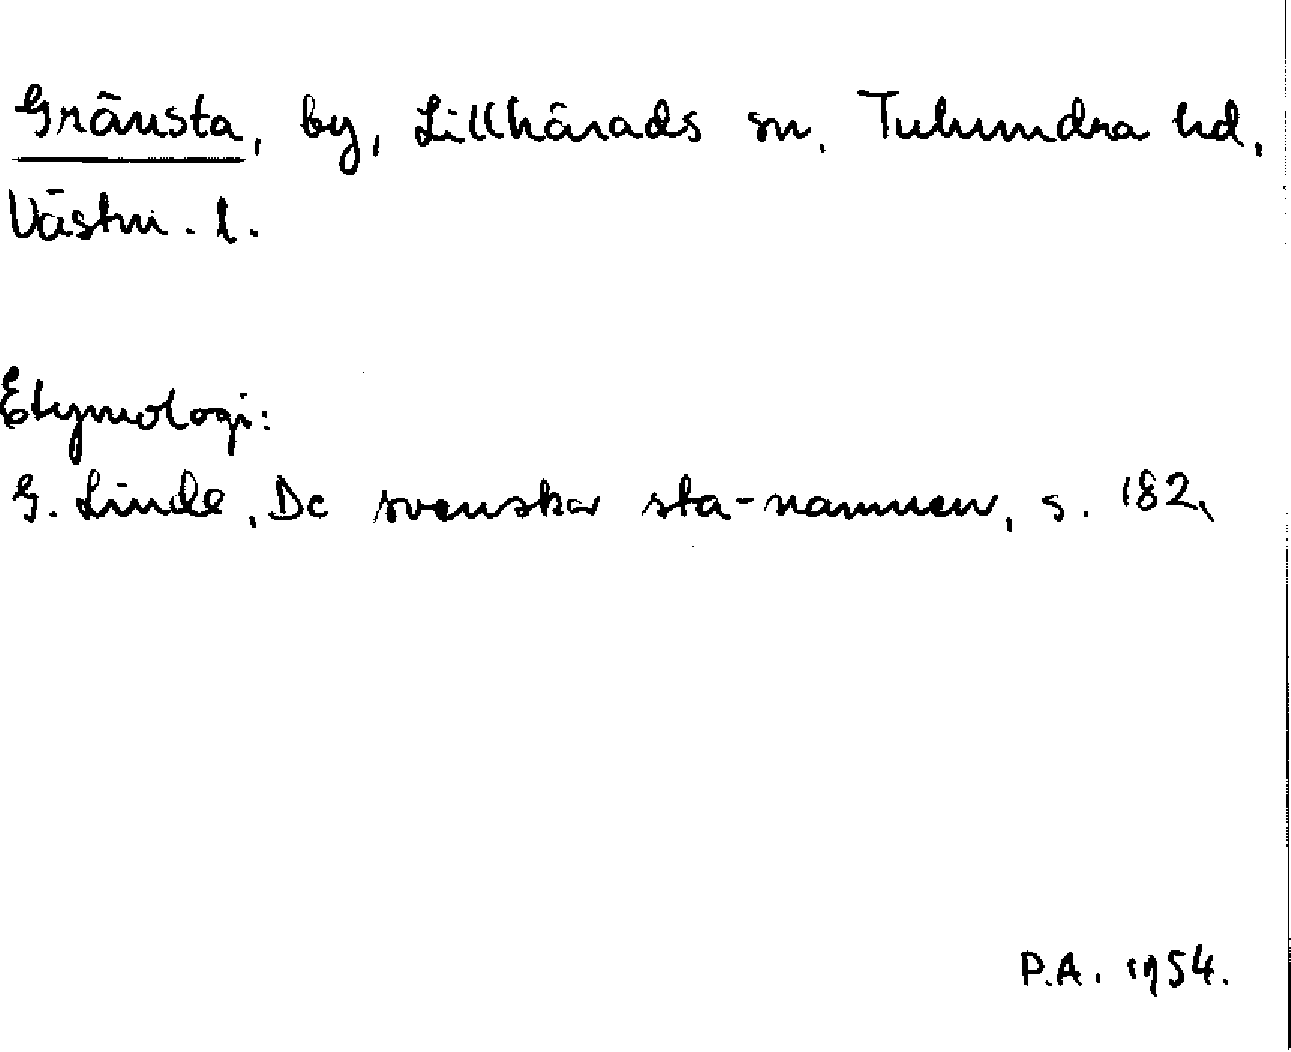 Gränsta, by, Lillhärads sn, Tuhundra hd,
Västm. l.
Etymologi:
G. Linde, De svenska sta-namnen, s. 182,
P.A. 1954.